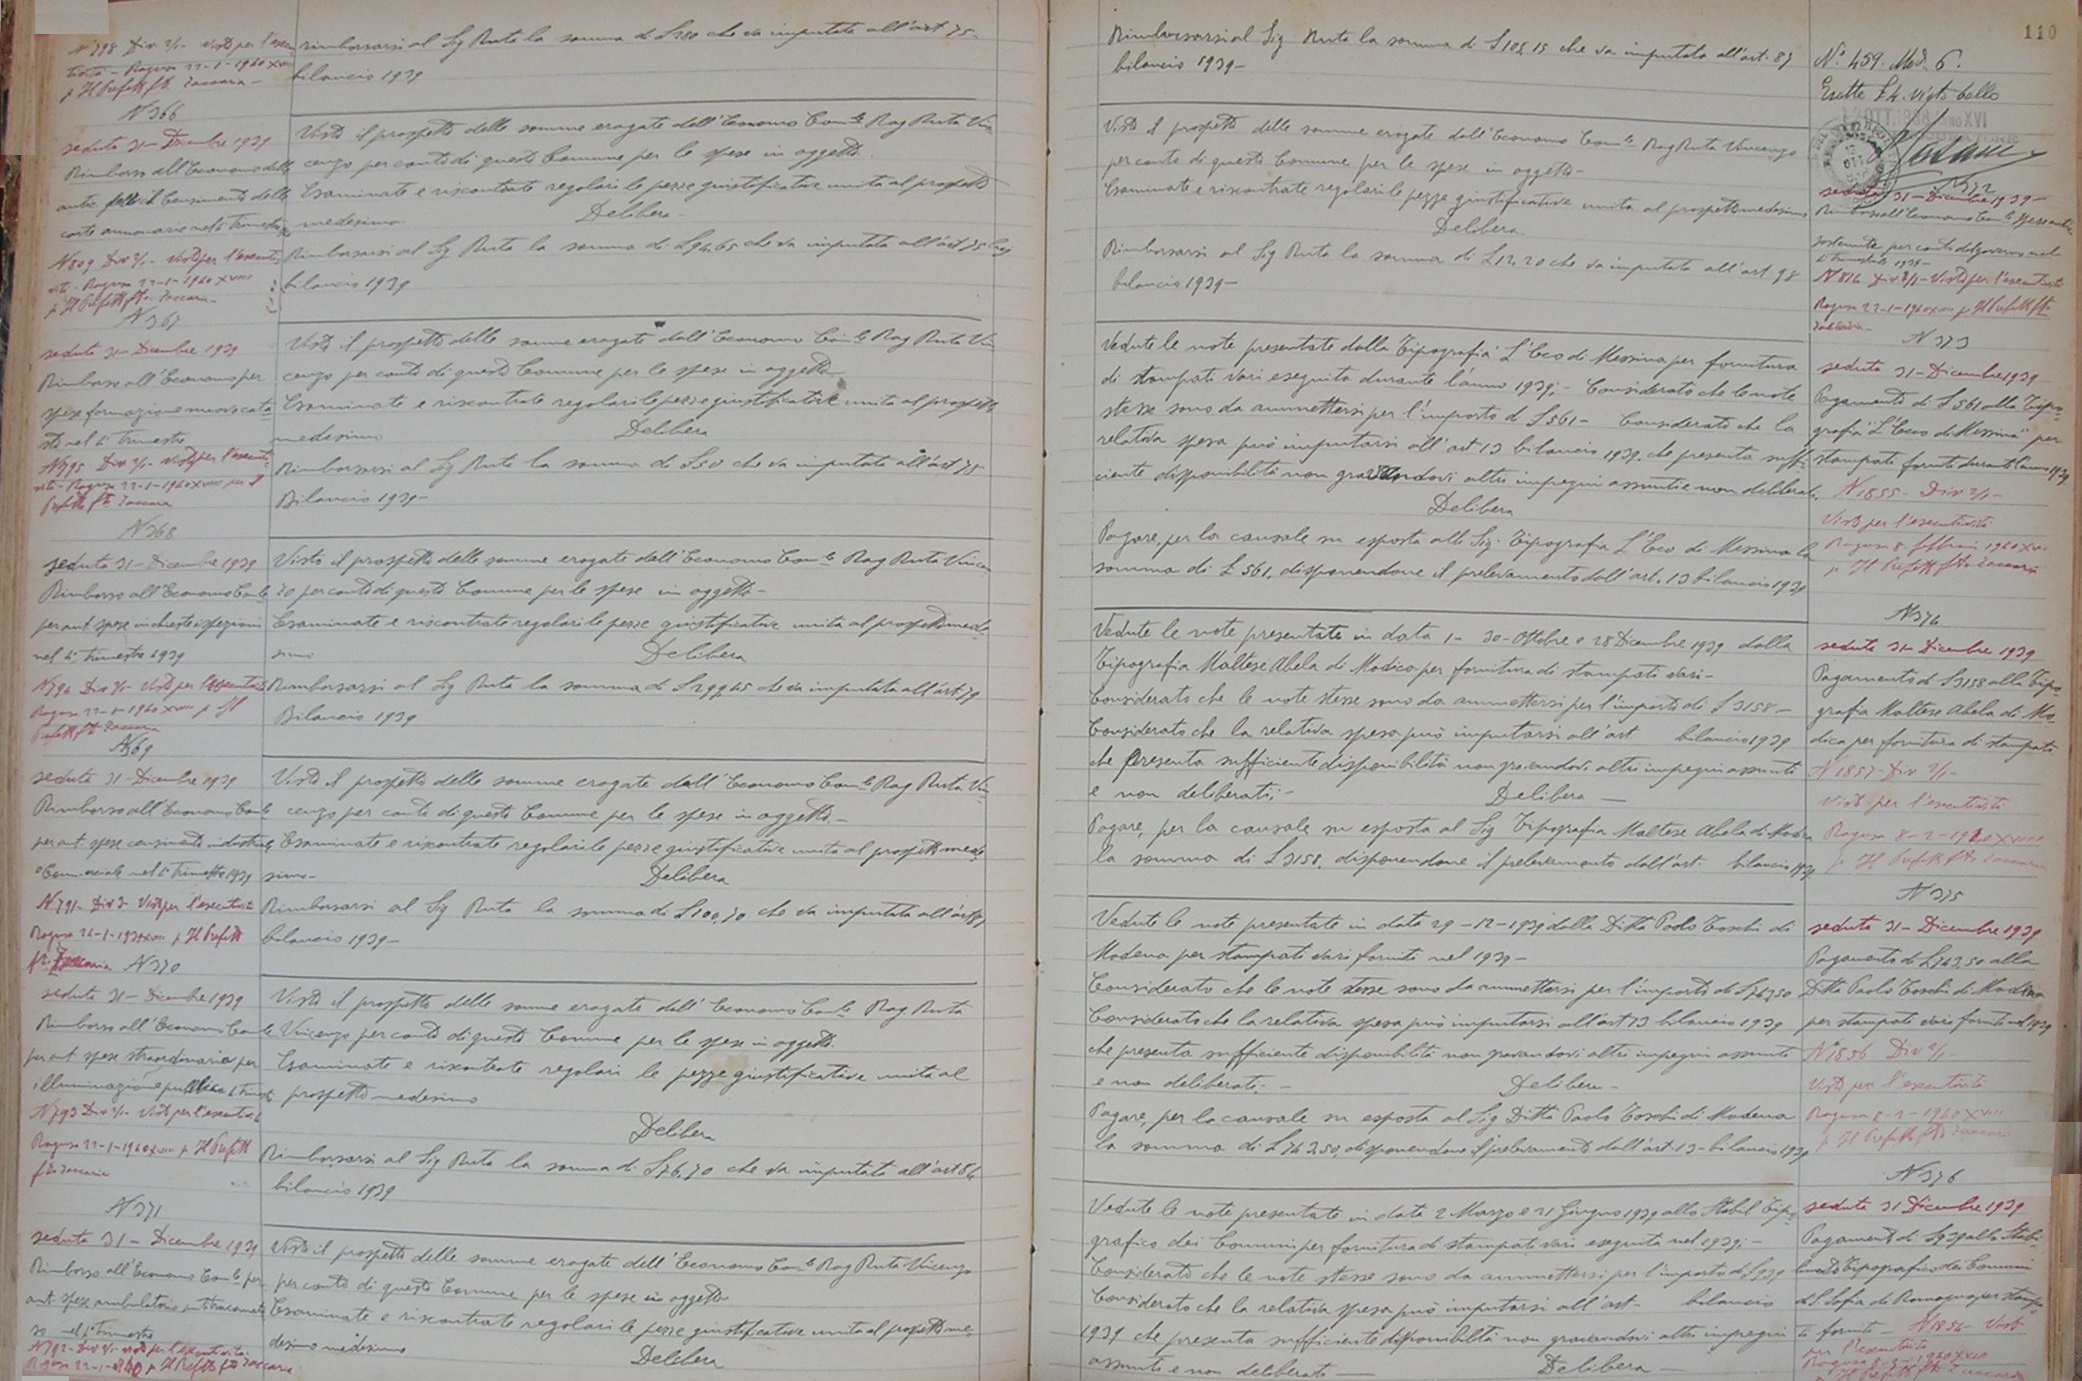 N 798 Div 2/1- Visto per l'esecu
rimborsarsi al Sig Ruta la somma di £ 280 che va imputata all'art 75-
Ragusa 22-1-1940 XVIII
bilancio 1939
p Il Prefetto fto Zaccaria -
N 366
seduta 31- Dicembre 1939
Rimborso all'Economo delle
N 809 Div 2/1- Visto per l'esecuti
Ragusa 22-1-1940 XVIII
p Il Prefetto fto Zaccaria-
Visto il prospetto delle somme erogate dall'Economo Com.le Rag Ruta Vin
cenzo per conto di questo Comune per le spese in oggetto.
Esaminate e riscontrate regolari le pezze giustificative unita al prospetto
medesimo.
Delibera-
Rimborsarsi al Sig Ruta la somma di £ 94,65 che va imputata all'art 75
bilancio 1939
N 367
seduta 31- Dicembre 1939
Rimborso all'Economo per
spese formazione nuovo cata
sto nel 4° Trimestre
N 795 Div 2/1- Visto per l'esecuti
Ragusa 22-1-1940 XVIII per Il
Prefetto fto Zaccaria
Visto il prospetto delle somme erogate dall'Economo Com.le Rag Ruta Vin
cenzo per conto di questo Comune per le spese in oggetto-
Esaminate e riscontrate regolari le pezze giustificative unita al prospetto
medesimo
Delibera
Rimborsarsi al Sig Ruta la somma di £ 50 che va imputata all'art 75
Bilancio 1939-
N 368
seduta 31- Dicembre 1939
Rimborso all'Economo Com.le
per ant. spese inchieste ispezioni
nel 4° Trimestre 1939
N 794 Div 2/1- Visto per l'esecutività
Ragusa 22-1-1940 XVIII p Il
Prefetto fto Zaccaria
Visto il prospetto delle somme erogate dall'Economo Com.le Rag Ruta Vincen
zo per conto di questo Comune per le spese in oggetto-
Esaminate e riscontrate regolari le pezze giustificative unita al prospetto mede
simo
Delibera
Rimborsarsi al Sig Ruta la somma di £ 299,45 che va imputata all'art 79
Bilancio 1939
N 369
seduta 31- Dicembre 1939
Rimborso all'Economo Com.le
per ant. spese censimento industriale
e Commerciale nel 4° Trimestre 1939
N 791- Div 2- Visto per l'esecutività
p Il Prefetto
fto Zaccaria
Visto il prospetto delle somme erogate dall'Economo Com.le Rag Ruta Vin
cenzo per conto di questo Comune per le spese in oggetto.-
Esaminate e riscontrate regolari le pezze giustificative unita al prospetto mede
simo-
Delibera
Rimborsarsi al Sig Ruta la somma di £ 100,70 che va imputata all'art
bilancio 1939-
N 370
seduta 31- Dicembre 1939
Rimborso all'Economo Com.le
per ant. spese straordinarie per
illuminazione pubblica 4° trimestre
N 793 Div 2/1- Visto per l'esecutività
Ragusa 22-1-1940 XVIII p Il Prefetto
fto Zaccaria
Visto il prospetto delle somme erogate dall'Economo Com.le Rag Ruta
Vincenzo per conto di questo Comune per le spese in oggetto.
Esaminate e riscontrate regolari le pezze giustificative unita al
prospetto medesimo
Delibera
Rimborsarsi al Sig Ruta la somma di £ 76,70 che va imputata all'art 84
bilancio 1939
N 371
seduta 31- Dicembre 1939
Rimborso all'Economo Com.le per
ant. spese ambulatorio antitracomato
so nel 4° Trimestre
N 792- Div 2/1- Visto per l'esecutività
Ragusa 22-1-1940 p Il Prefetto fto Zaccaria
Visto il prospetto delle somme erogate dall'Economo Com.le Rag Ruta Vincenzo
per conto di questo Comune per le spese in oggetto
Esaminate e riscontrate regolari le pezze giustificative unita al prospetto me,
desimo medesimo
Delibera
110
Rimborsarsi al Sig Ruta la somma di £ 105,15 che va imputata all'art. 87
bilancio 1939-
N° 459. Mod. 6.
Esatte £ 4. vigto bollo
Visto il prospetto delle somme erogate dall'Economo Com.le Rag Ruta Vincenzo
per conto di questo Comune per le spese in oggetto-
Esaminate e riscontrate regolari le pezze giustificative unita al prospetto medesimo
Delibera
Rimborsarsi al Sig Ruta la somma di £ 12,20 che va imputata all'art 98
bilancio 1939-
N 372
seduta 31- Dicembre 1939-
Rimborso all'Economo Com.le spese antic
sostenute per conto del governo nel
4° trimestre 1939-
N 816 Div 2/1- Visto per l'esecutività
Ragusa 22-1-1940 XVIII p Il Prefetto fto
Zaccaria-
Vedute le note presentate dalla Tipografia L'Eco di Messina per fornitura
di stampati vari eseguita durante l'anno 1939:- Considerato che le note
stesse sono da ammettersi per l'importo di £ 561- Considerato che la
relativa spesa può imputarsi all'art 13 bilancio 1939, che presenta suffi-
ciente disponibilità non gravandovi altri impegni assunti e non deliberati.
Delibera
Pagare, per la causale su esposta alla Sig. Tipografia L'Eco di Messina la
somma di £ 561, disponendone il prelevamento dall'art. 13 bilancio 1939
N 373
seduta 31- Dicembre 1939-
Pagamento di £ 561 alla Tipo-
grafia "L'Eco di Messina" per
stampati forniti durante l'anno 1939
N 1855- Div 2/1-
Visto per l'esecutività
Ragusa 8 febbraio 1940 XVIII
p Il Prefetto fto Zaccaria
Vedute le note presentate in data 1- 30- Ottobre e 28 Dicembre 1939 dalla
Tipografia Maltese Abela di Modica per fornitura di stampati vari-
Considerato che le note stesse sono da ammettersi per l'importo di £ 3158-
Considerato che la relativa spesa può imputarsi all'art bilancio 1939
che presenta sufficiente disponibilità non gravandovi altri impegni assunti
e non deliberati;-
Delibera -
Pagare, per la causale su esposta al Sig Tipografia Maltese Abela di Modica
la somma di £ 3158, disponendone il prelevamento dall'art. bilancio 1939
N 374
seduta 31- Dicembre 1939
Pagamento di £ 3158 alla Tipo
grafia Maltese Abela di Mo-
dica per fornitura di stampati
N 1857- Div 2/1-
Visto per l'esecutività
Ragusa 8-2-1940 XVIII
p Il Prefetto fto Zaccaria
Vedute le note presentate in data 29-12-1939 dalla Ditta Paolo Toschi di
Modena per stampati vari forniti nel 1939-
Considerato che le note stesse sono da ammettersi per l'importo di £ 763,50
Considerato che la relativa spesa può imputarsi all'art 13 bilancio 1939
che presenta sufficiente disponibilità non gravandovi altri impegni assunti
e non deliberati:-
Delibera-
Pagare, per la causale su esposta al Sig Ditta Paolo Toschi di Modena
la somma di £ 763,50, disponendone il prelevamento dall'art. 13- bilancio 1939
N 375
seduta 31- Dicembre 1939
Pagamento di £ 763,50 alla
Ditta Paolo Toschi di Modena
per stampati vari forniti nel 1939
N 1856 Div 2/1-
Visto per l'esecutività
Ragusa 8-2-1940 XVIII
p Il Prefetto fto Zaccaria
Vedute le note presentate in data 2 Marzo e 21 Giugno 1939 allo Stabil Tipo
grafico dei Comuni per fornitura di stampati vari eseguita nel 1939;-
Considerato che le note stesse sono da ammettersi per l'importo di £ 939
Considerato che la relativa spesa può imputarsi all'art- bilancio
1939 che presenta sufficiente disponibilità non gravandovi altri impegni
assunti e non deliberati-
Delibera-
N 376
seduta 31 Dicembre 1939
Pagamento di £ 939 allo Stabi-
limento Tipografico dei Comuni
di S. Sofia di Romagna per stampa-
ti forniti- N 1854- Visto
per l'esecutività
p Il Prefetto fto Zaccaria